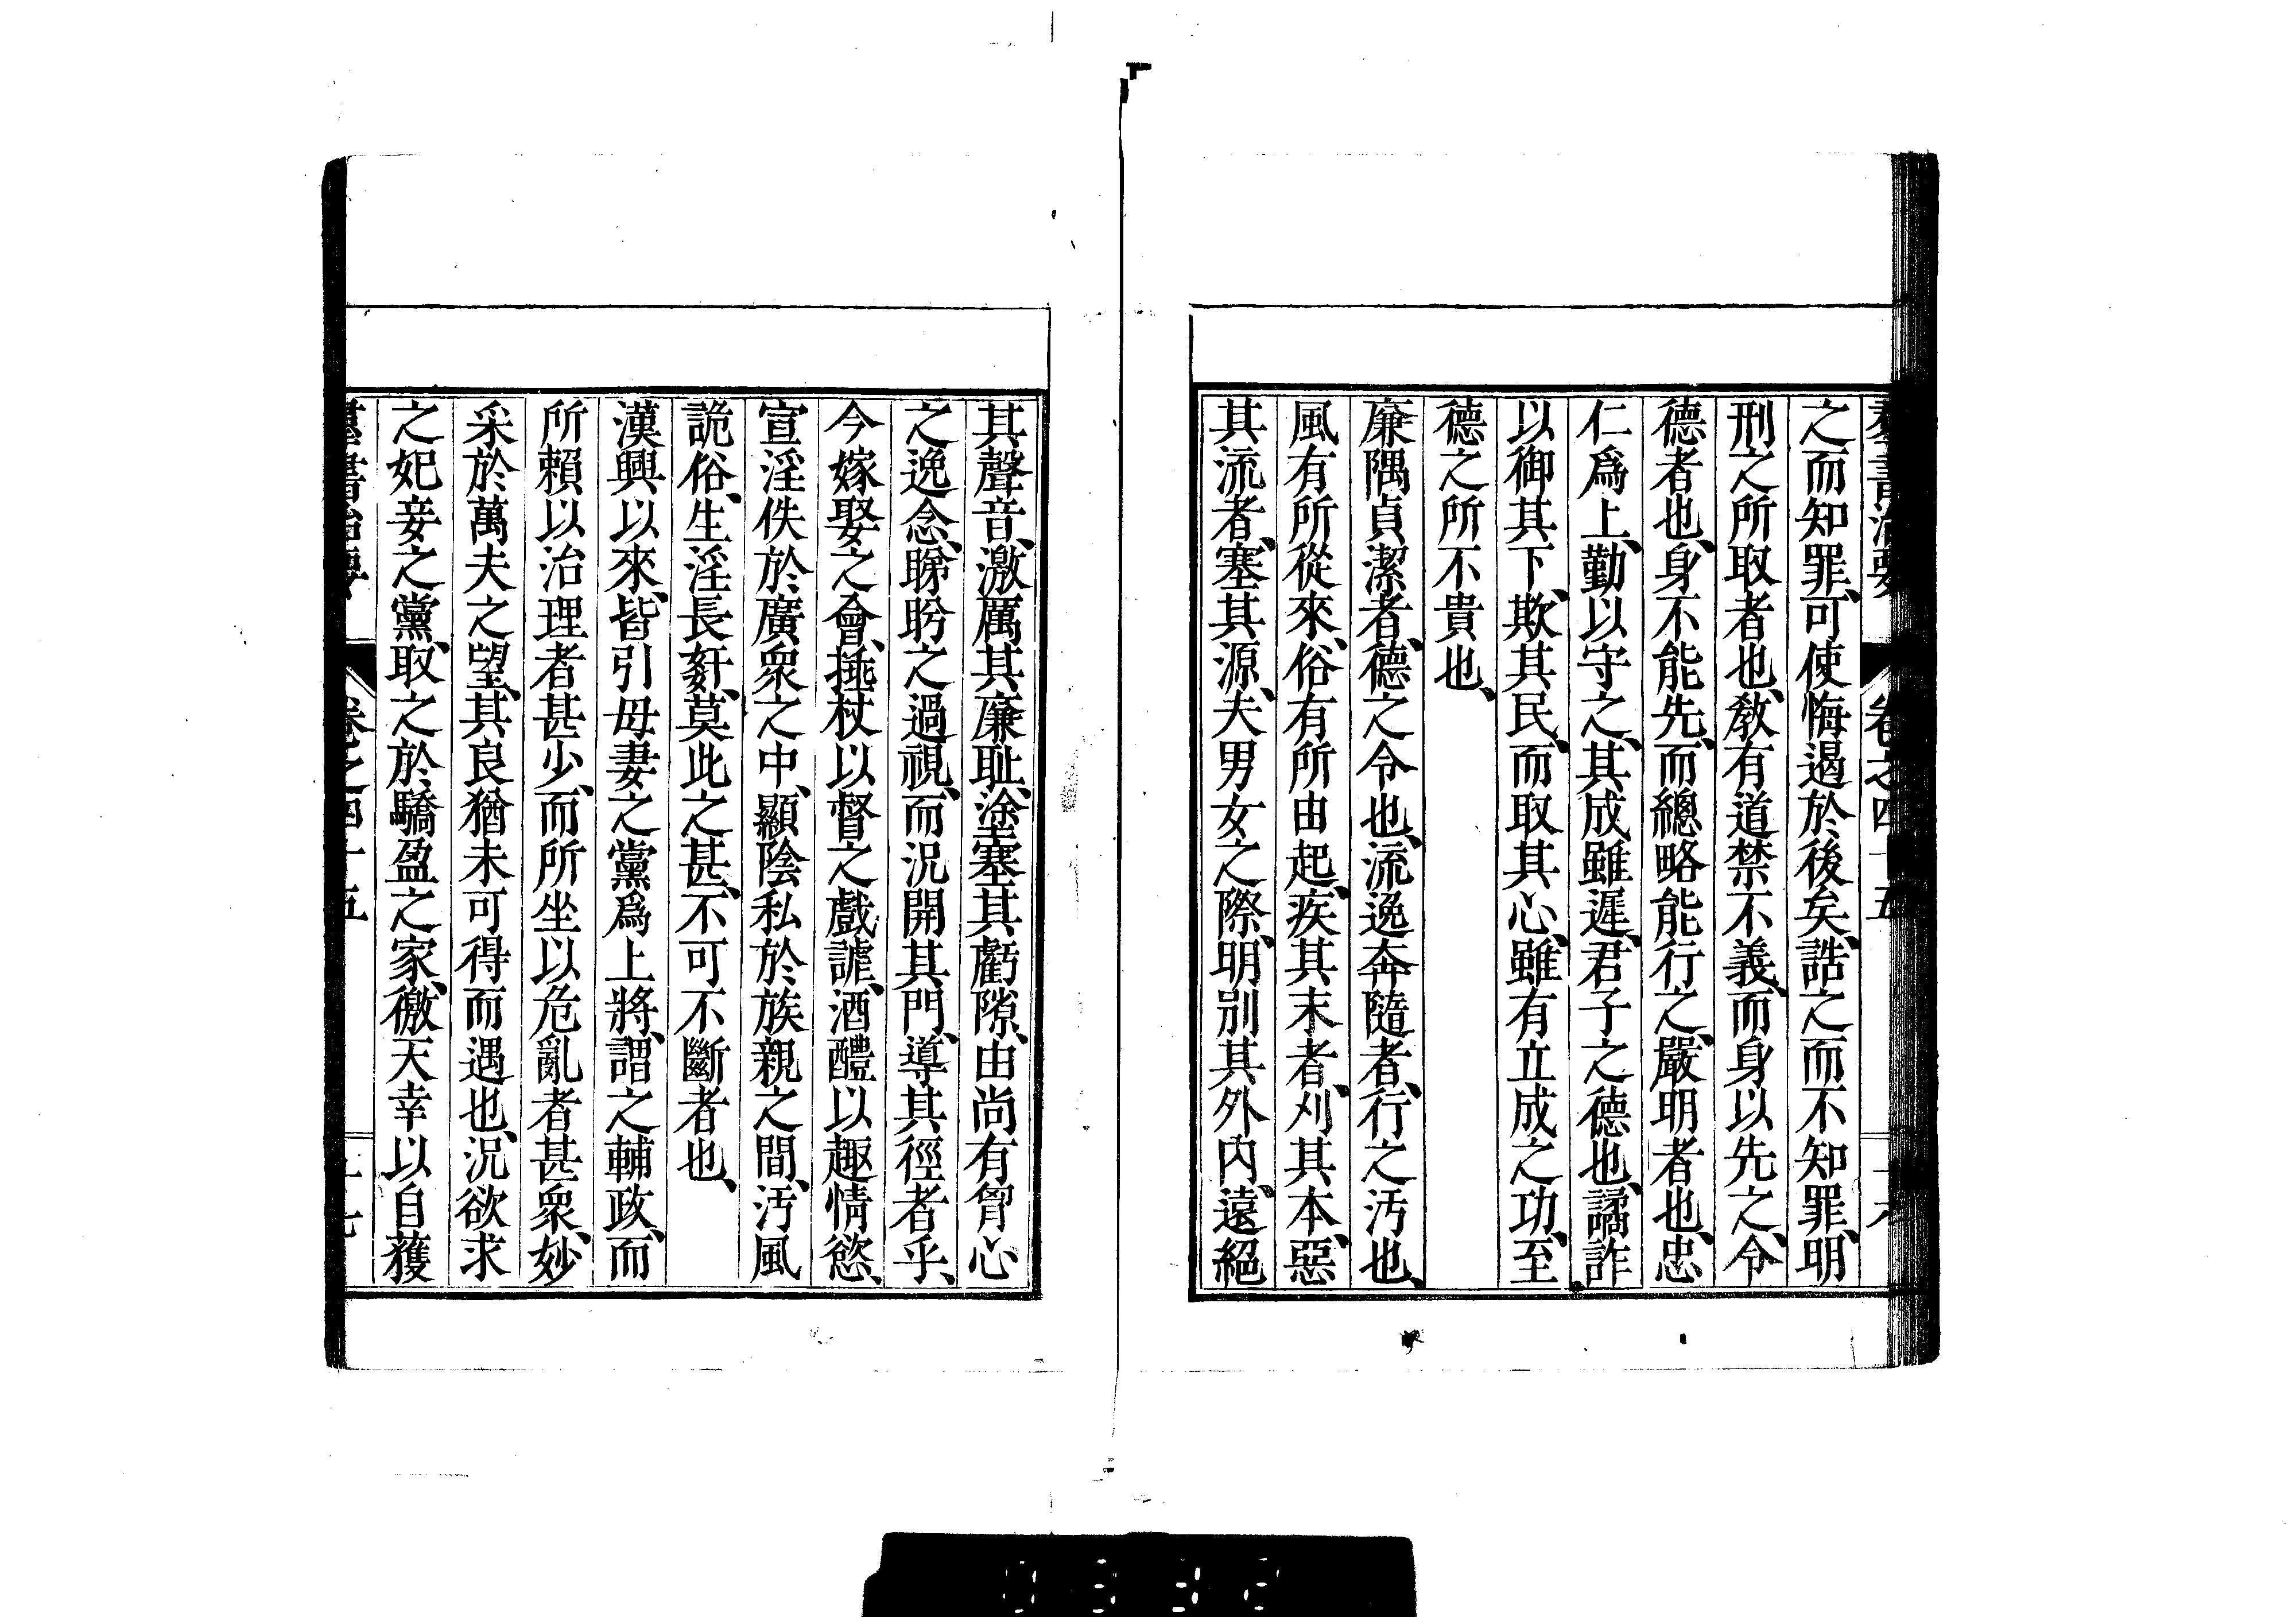 羣書治要 卷之四十五
之而知罪、可使悔遏於後矣、誥之而不知罪、明
刑之所取者也、敎有道禁不義、而身以先之、令
德者也、身不能先、而總略能行之、嚴明者也、忠
仁爲上、勤以守之、其成雖遲、君子之德也、譎詐
以御其下、欺其民、而取其心、雖有立成之功、至
德之所不貴也、
廉隅貞潔者、德之令也、流逸奔隨者、行之汚也、
風有所從來、俗有所由起、疾其末者、刈其本、惡
其流者、塞其源、夫男女之際、明別其外內、遠絕
其聲音、激厲其廉耻、塗塞其虧隙、由尚有胷心
之逸念、睇盻之過視、而況開其門、導其徑者乎、
今嫁娶之會、捶杖以督之戲謔、酒醴以趣情慾、
宣淫佚於廣衆之中、顯陰私於族親之間、汚風
詭俗、生淫長姧、莫此之甚、不可不斷者也、
漢興以來、皆引母妻之黨爲上將、謂之輔政、而
所賴以治理者甚少、而所坐以危亂者甚衆、妙
采於萬夫之望、其良猶未可得而遇也、況欲求
之妃妾之黨、取之於驕盈之家、徼天幸以自獲
羣書治要 卷之四十五